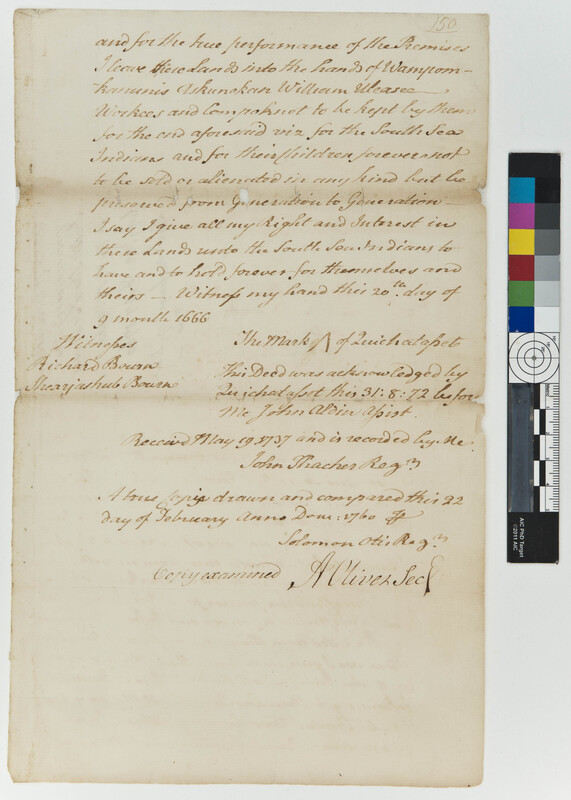 150
and for the true performance of the Premises
I leave these Lands into the hands of Wampom-
hammis William
Workees and Compohnot to be kept by them
for the end aforesaid viz for the South Sea
Indians and for their Children forever not
to be sold or alienated in any kind but be
preserved from Generation to Generation—
I say I give all my Right and Interest in
these Lands unto the South Sea Indians to
have and to hold forever for themselves and
theirs — Witness my hand this 20th day of
9 month 1666
Witnesses
Richard Bourn
Shearjashub Bourn
The Mark of Quichatasset
This Deed was acknowledged by
Quichatasset this 31:8:72 before
me John Aldin Assist.
Received May 19. 1737 and is recorded by Me
John Thacher Regr
A true Copy drawn and compared this 22
day of February Anno Dom: 1760
Solomon Otis Regr
Copy examined A Oliver Sec
AIC PhD Target
©2011 AIC